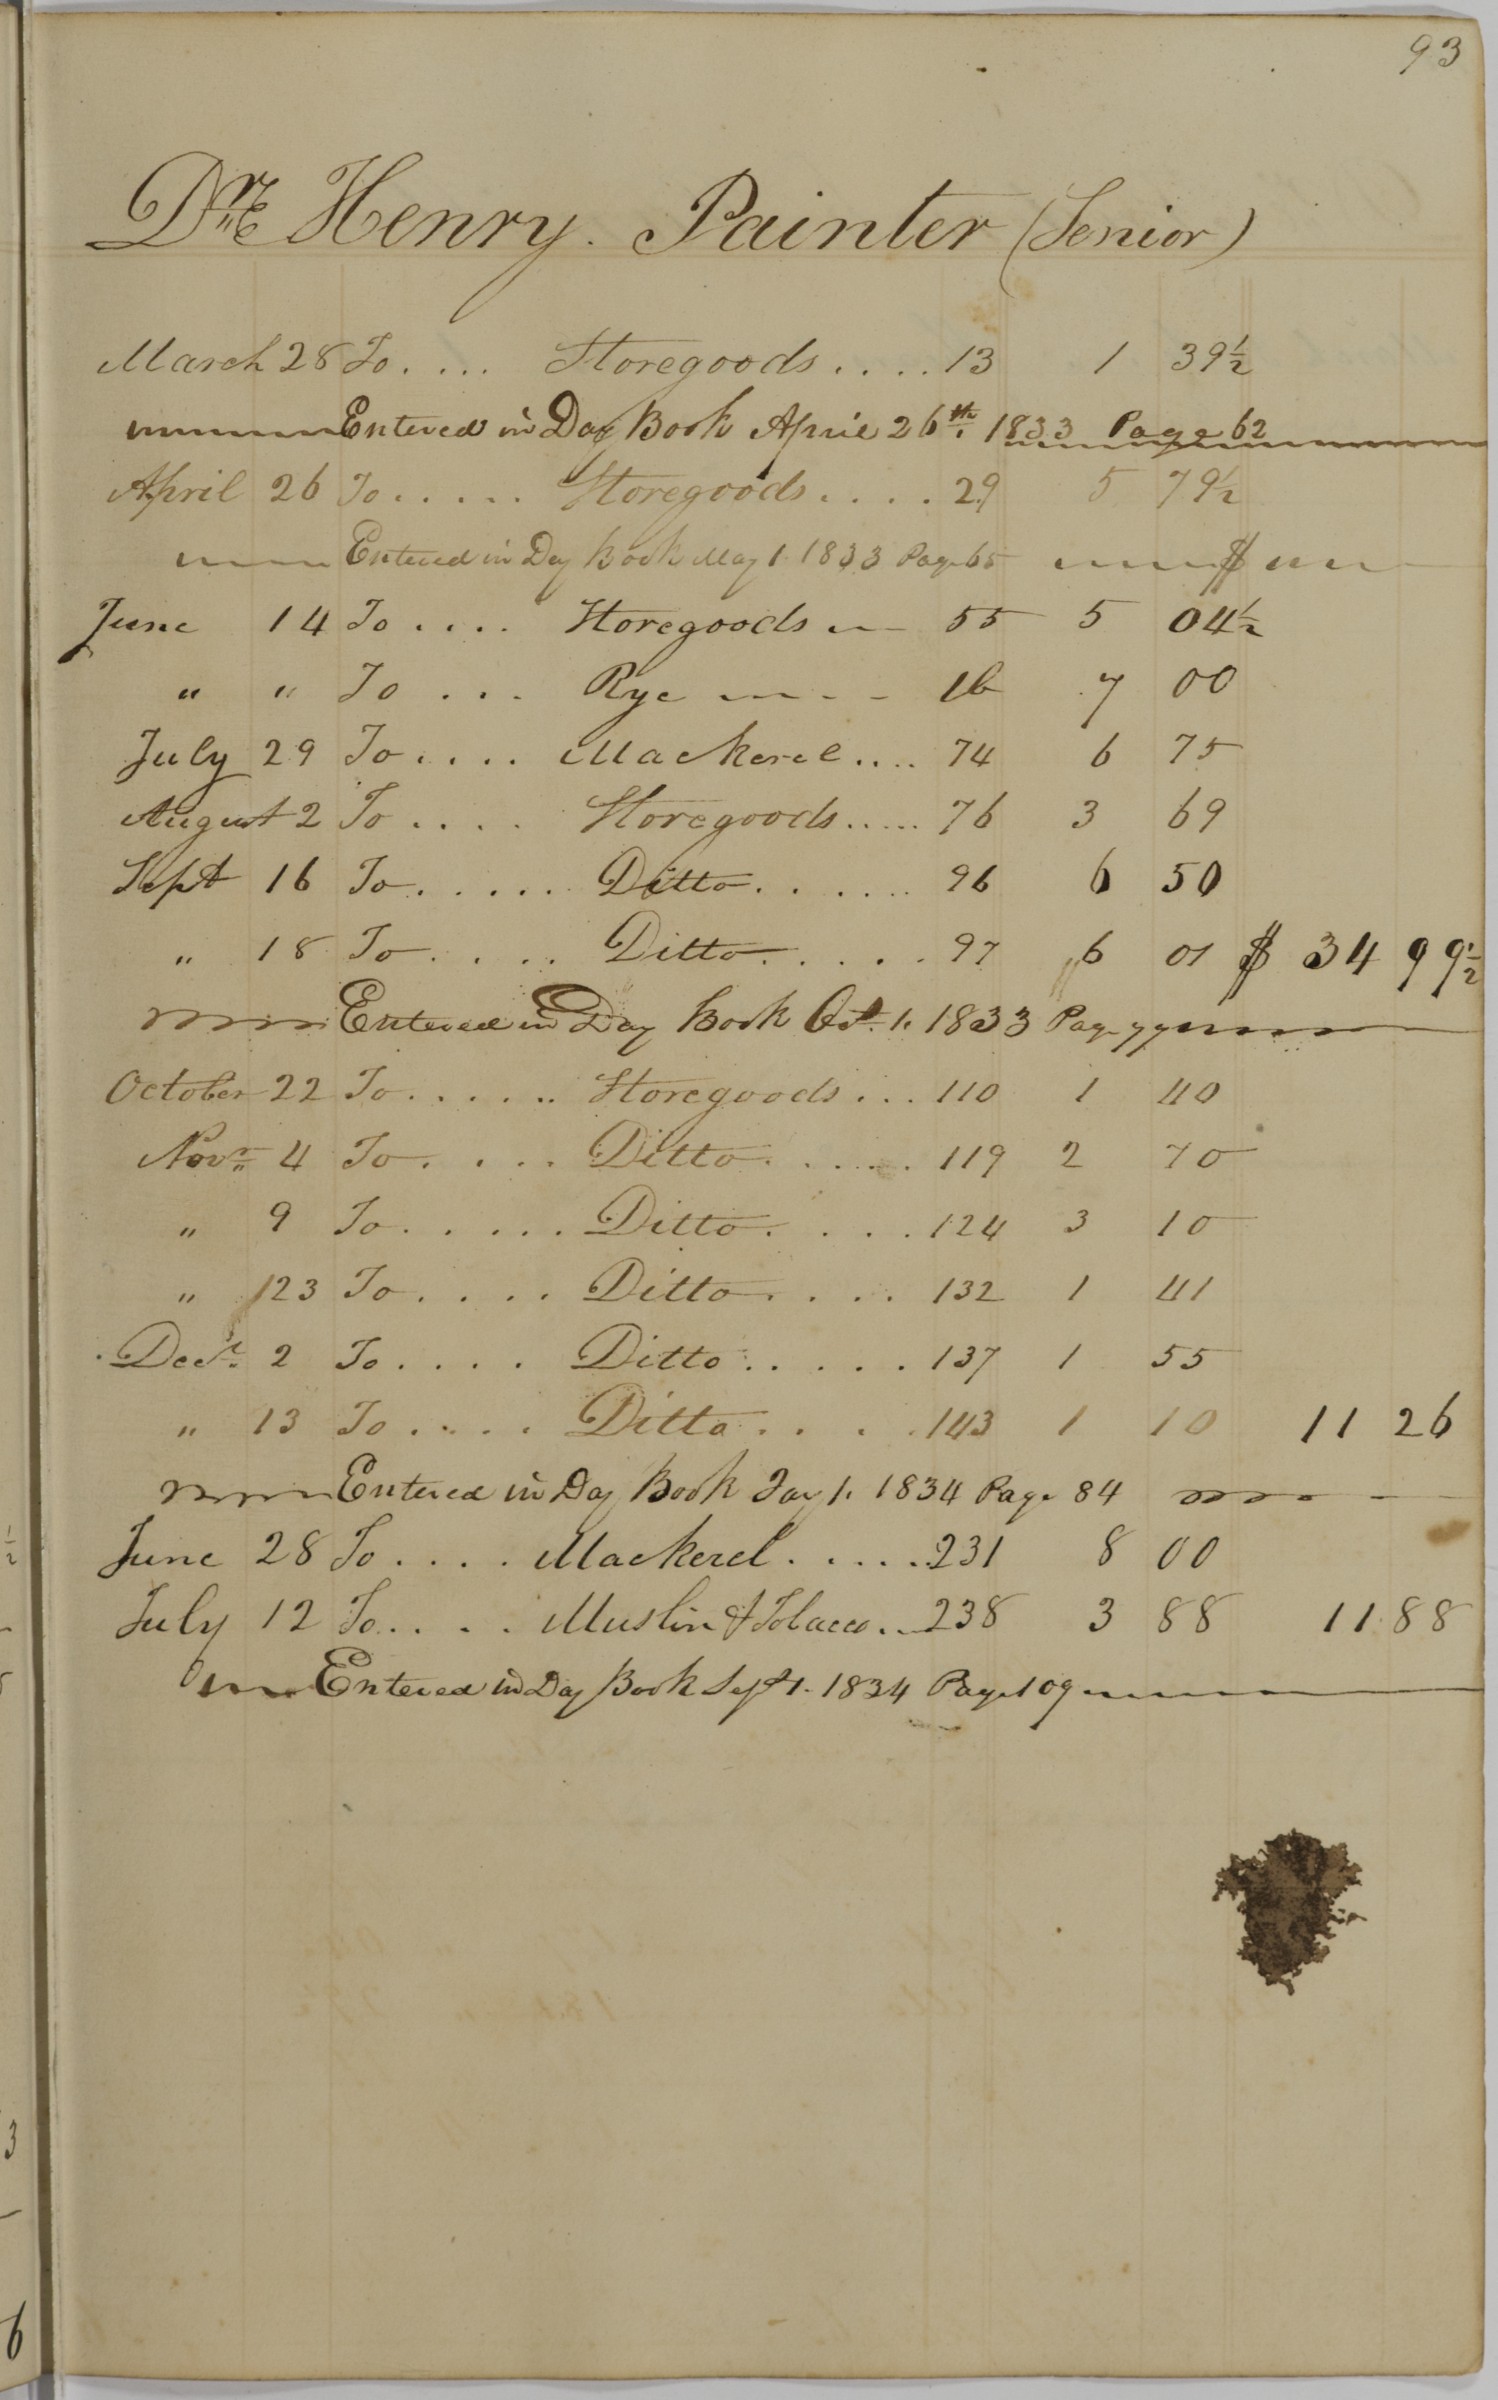 93
Dr. Henry. Painter (Senior)
March 28 To .... Storegoods .... 13 1 39½
Entered in Day Book April 26th. 1833 Page 62
April 26 To ..... Storegoods .... 29 5 79½
Entered in Day Book May 1 1833 Page 65 $
June 14 To .... Storegoods — 55 5 04½
" " To ... Rye — - - 16 7 00
July 29 To .... Mackerel .... 74 6 75
August 2 To .... Storegoods ..... 76 3 69
Sept 16 To ..... Ditto ...... 96 6 50
" 18 To .... Ditto ..... 97 6 01 $ 34 99½
Entered in Day Book Oct. 1. 1833 Page 77
October 22 To ...... Storegoods ... 110 1 40
Novr. 4 To .... Ditto ..... 119 2 70
" 9 To ..... Ditto .... 124 3 10
" 23 To .... Ditto .... 132 1 41
Decr. 2 To .... Ditto ..... 137 1 55
" 13 To .... Ditto .... 143 1 10 11 26
Entered in Day Book Jay 1. 1834 Page 84
June 28 To .... Mackerel ..... 231 8 00
July 12 To .... Muslin & Tobacco .. 238 3 88 11 88
Entered in Day Book Sept 1. 1834 Page 109